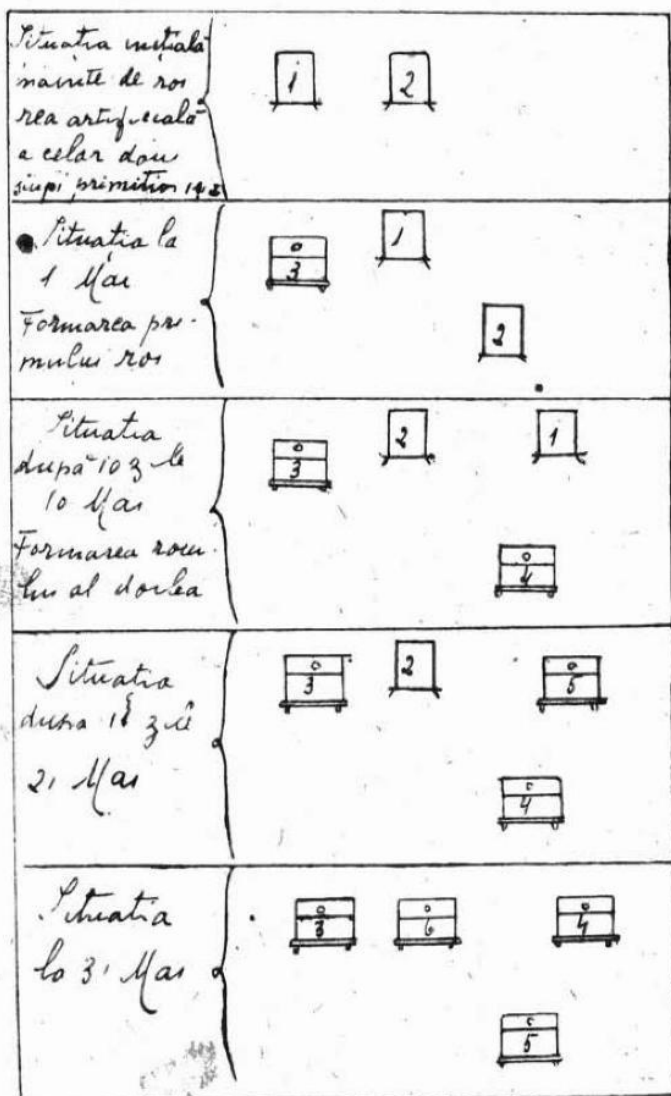 Situatia initială
nainte de roi
rea artificială
a celor doui
stupi primitivi 1 și 2
1 2
Situatia la
1 Mai
Formarea pri-
mului roi
3 1
2
Situatia
după 10 zile
10 Mai
Formarea roiu-
lui al doilea
3 2 1
4
Situatia
dupa zile
21 Mai
3 2 5
4
Situatia
la 31 Mai
3 6 4
5